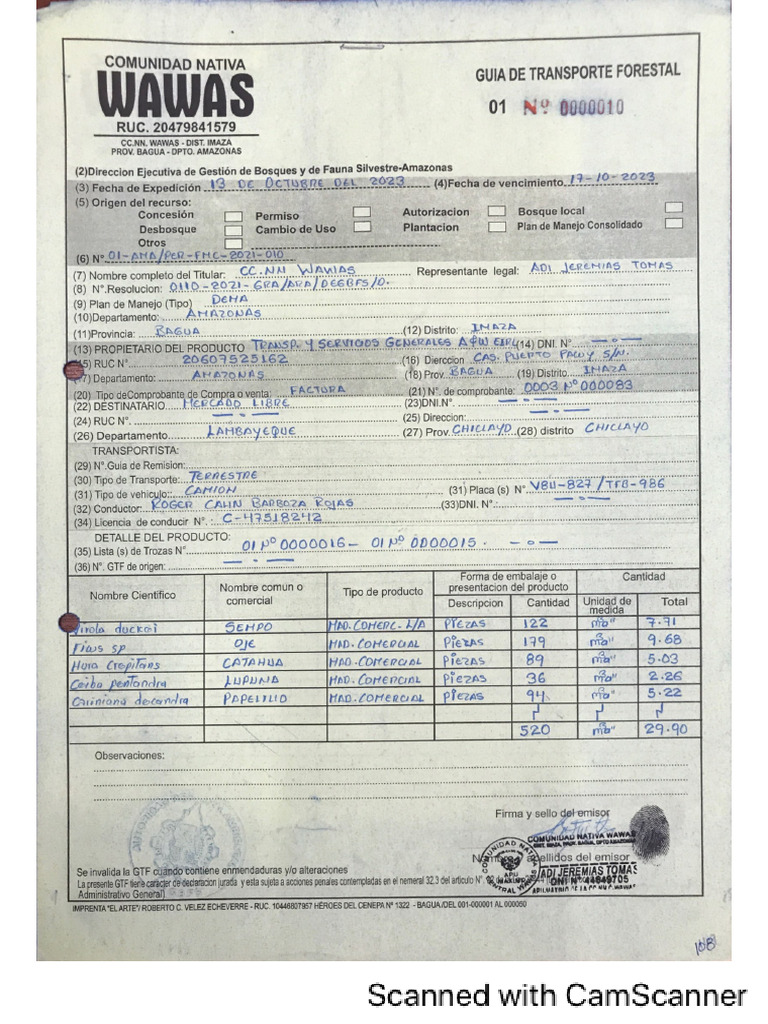 COMUNIDAD NATIVA
WAWAS
RUC. 20479841579
CC.NN. WAWAS - DIST. IMAZA
PROV. BAGUA - DPTO. AMAZONAS
GUIA DE TRANSPORTE FORESTAL
01 Nº 0000010
(2)Direccion Ejecutiva de Gestión de Bosques y de Fauna Silvestre-Amazonas
(3) Fecha de Expedición 13 DE OCTUBRE DEL 2023 (4)Fecha de vencimiento 17-10-2023
(5) Origen del recurso:
Concesión Permiso Autorizacion Bosque local
Desbosque Cambio de Uso Plantacion Plan de Manejo Consolidado
Otros
(6) Nº 01-AMA/PER-FMC-2021-010
(7) Nombre completo del Titular: CC.NN WAWAS Representante legal: ADI JEREMIAS TOMAS
(8) Nº.Resolucion: 0110-2021-GRA/ARA/DEGBFS/D.
(9) Plan de Manejo (Tipo) DEMA
(10)Departamento: AMAZONAS
(11)Provincia: BAGUA (12) Distrito: IMAZA
(13) PROPIETARIO DEL PRODUCTO TRANSP. Y SERVICIOS GENERALES A&W EIRL (14) DNI. Nº -o-
15) RUC Nº 20607525162 (16) Dierccion CAS. PUERTO PAKUY S/N.
17) Departamento: AMAZONAS (18) Prov. BAGUA (19) Distrito. IMAZA
(20) Tipo deComprobante de Compra o venta: FACTURA (21) N°. de comprobante: 0003 Nº 000083
(22) DESTINATARIO MERCADO LIBRE (23)DNI.Nº -o-
(24) RUC Nº. -o- (25) Direccion: -o-
(26) Departamento LAMBAYEQUE (27) Prov. CHICLAYO (28) distrito CHICLAYO
TRANSPORTISTA:
(29) Nº.Guia de Remision:
(30) Tipo de Transporte: TERRESTRE
(31) Tipo de vehiculo: CAMION (31) Placa (s) Nº V8U-827 / TFB-986
(32) Conductor: ROGER CALIN BARBOZA ROJAS (33)DNI. Nº.: -o-
(34) Licencia de conducir Nº. : C-47518242
DETALLE DEL PRODUCTO:
(35) Lista (s) de Trozas Nº 01 Nº 0000016 - 01 Nº 0000015. -o-
(36) Nº. GTF de origen: -o-
Nombre Cientifico Nombre comun o comercial Tipo de producto Forma de embalaje o presentacion del producto Cantidad
Descripcion Cantidad Unidad de medida Total
Virola duckei SEMPO MAD. COMERC. L/A PIEZAS 122 m3 7.71
Ficus sp OJE MAD. COMERCIAL PIEZAS 179 m3 9.68
Hura Crepitans CATAHUA MAD. COMERCIAL PIEZAS 89 m3 5.03
Ceiba pentandra LUPUNA MAD. COMERCIAL PIEZAS 36 m3 2.26
Cariniana decandra PAPELILLO MAD. COMERCIAL PIEZAS 94 m3 5.22
520 m3 29.90
Observaciones:
Firma y sello del emisor
COMUNIDAD NATIVA WAWAS
DIST. IMAZA, PROV. BAGUA, DPTO AMAZONAS
apellidos del emisor
ADI JEREMIAS TOMAS
DNI Nº 44649705
Se invalida la GTF cuando contiene enmendaduras y/o alteraciones
La presente GTF tiene caracter de declaracion jurada y esta sujeta a acciones penales contempladas en el nemeral 32.3 del articulo Nº.
Administrativo General)
IMPRENTA "EL ARTE"/ ROBERTO C. VELEZ ECHEVERRE - RUC. 10446807957 HÉROES DEL CENEPA Nº 1322 - BAGUA/DEL 001-000001 AL 000050
108
Scanned with CamScanner